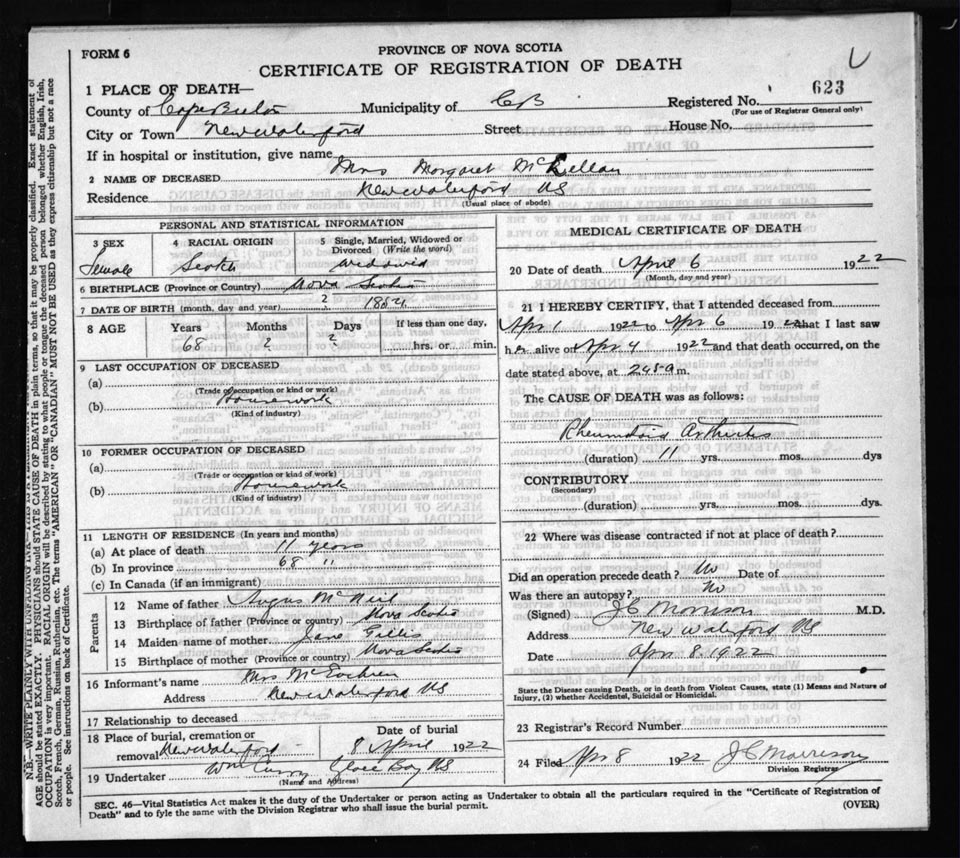 FORM 6
PROVINCE OF NOVA SCOTIA
CERTIFICATE OF REGISTRATION OF DEATH
623
1 PLACE OF DEATH—
County of Cape Breton Municipality of CB Registered No.
(For use of Registrar General only)
City or Town New Waterford Street House No.
If in hospital or institution, give name
2 NAME OF DECEASED Mrs Margaret McLellan
Residence New Waterford NS
(Usual place of abode)
PERSONAL AND STATISTICAL INFORMATION
3 SEX 4 RACIAL ORIGIN 5 Single, Married, Widowed or Divorced (Write the word)
Female Scotch Widowed
6 BIRTHPLACE (Province or Country) Nova Scotia
7 DATE OF BIRTH (month, day and year) ? 1854
8 AGE Years Months Days If less than one day,
68 ? ? hrs. or min.
9 LAST OCCUPATION OF DECEASED
(a)
(Trade or occupation or kind of work)
(b) Housework
(Kind of industry)
10 FORMER OCCUPATION OF DECEASED
(a)
(Trade or occupation or kind of work)
(b) Housework
(Kind of industry)
11 LENGTH OF RESIDENCE (In years and months)
(a) At place of death 11 years
(b) In province 68 "
(c) In Canada (if an immigrant)
Parents
12 Name of father Angus McNeil
13 Birthplace of father (Province or country) Nova Scotia
14 Maiden name of mother Jane Gillis
15 Birthplace of mother (Province or country) Nova Scotia
16 Informant's name Mrs McEachren
Address New Waterford NS
17 Relationship to deceased
18 Place of burial, cremation or removal New Waterford
Date of burial
8 April 1922
19 Undertaker Wm Curry Glace Bay NS
(Name and Address)
MEDICAL CERTIFICATE OF DEATH
20 Date of death April 6 1922
(Month, day and year)
21 I HEREBY CERTIFY, that I attended deceased from
Apr 1 1922 to Apr 6 1922 that I last saw
her alive on Apr 4 1922 and that death occurred, on the
date stated above, at 245 a m.
The CAUSE OF DEATH was as follows:
Rheumatoid Arthritis
(duration) 11 yrs. mos. dys
CONTRIBUTORY
(Secondary)
(duration) yrs. mos. dys.
22 Where was disease contracted if not at place of death?
Did an operation precede death? No Date of
Was there an autopsy? No
(Signed) J C Morrison M.D.
Address New Waterford NS
Date Apr 8. 1922
State the Disease causing Death, or in death from Violent Causes, state (1) Means and Nature of
Injury, (2) whether Accidental, Suicidal or Homicidal.
23 Registrar's Record Number
24 Filed Apr 8 1922 J C Morrison
Division Registrar
SEC. 46—Vital Statistics Act makes it the duty of the Undertaker or person acting as Undertaker to obtain all the particulars required in the "Certificate of Registration of
Death" and to fyle the same with the Division Registrar who shall issue the burial permit.
(OVER)
AGE should be stated EXACTLY. PHYSICIANS should STATE CAUSE OF DEATH in plain terms, so that it may be properly classified. Exact statement of
OCCUPATION is very important. RACIAL ORIGIN will be described by stating to what people or tongue the deceased person belonged whether English, Irish,
Scotch, French, German, Russian, Ruthenian, etc. The terms "AMERICAN" OR "CANADIAN" MUST NOT BE USED as they express citizenship but not a race
or people. See instructions on back of Certificate.